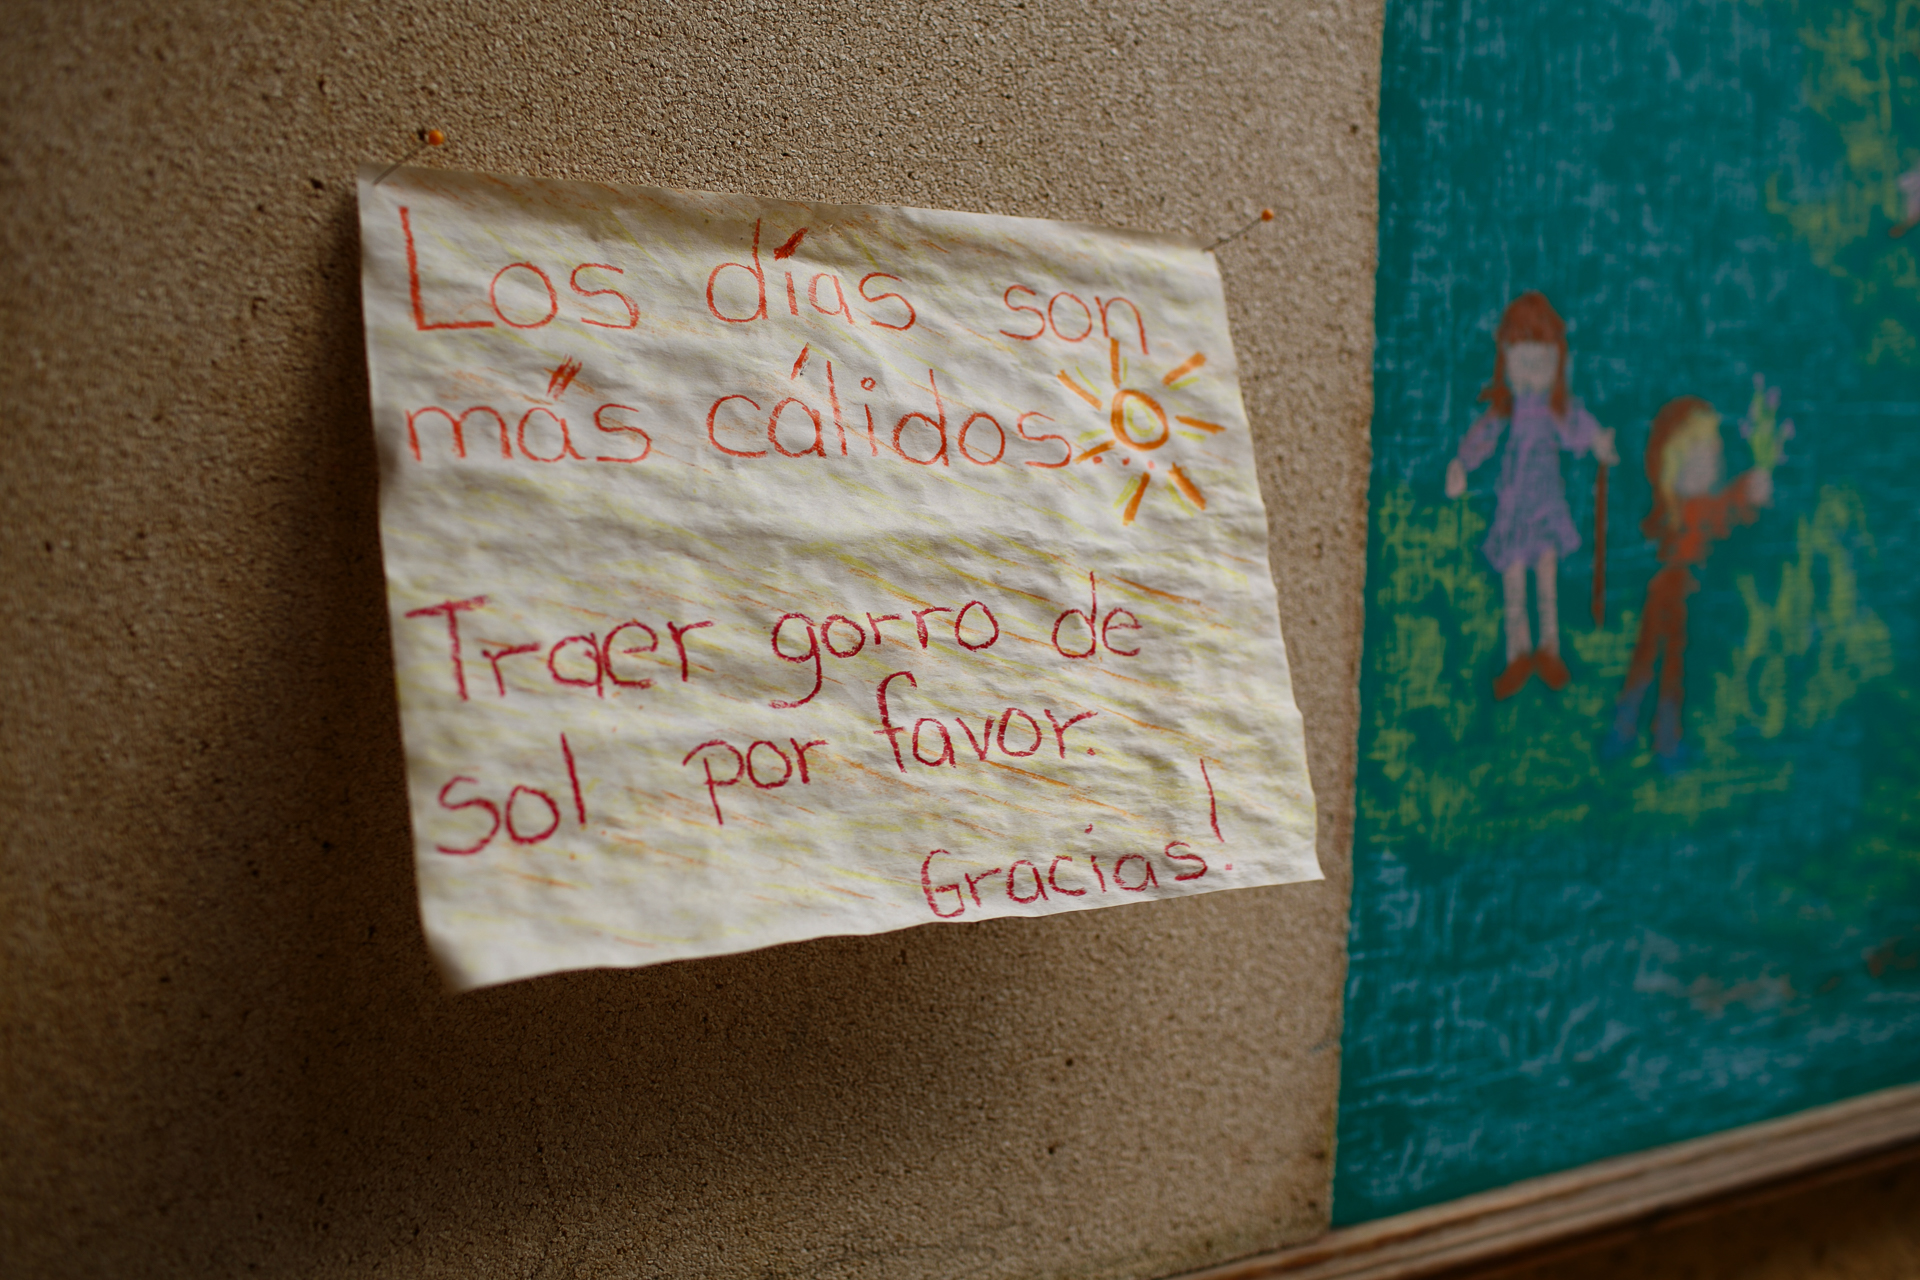 Los días son
más cálidos...
Traer gorro de
sol por favor.
Gracias!